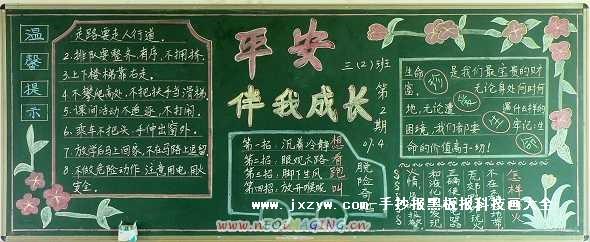 温馨提示
1.走路要走人行道.
2.排队要整齐.有序.不拥挤.
3.上下楼梯靠右走.
4.不攀爬高处.不把扶手当滑梯.
5.课间活动不追逐.不打闹.
6.乘车不把头.手伸出窗外.
7.放学后马上回家.不在马路上逗留.
8.不做危险动作.注意用电.用火安全.
平安
伴我成长
三(2)班
第2期
第一招:沉着冷静想
第二招:眼观六路看
第三招:脚下生风跑
第四招:放开喉咙叫
脱险奇
生命 是我们最宝贵的财
富. 无论身处何时何
地,无论遭 遇什么样的
困境,我们都要 牢记:生
命的价值高于一切!
怎样 火
www.jxzyw.com-手抄报黑板报科技画大全
www.nEOIMAGING.cn